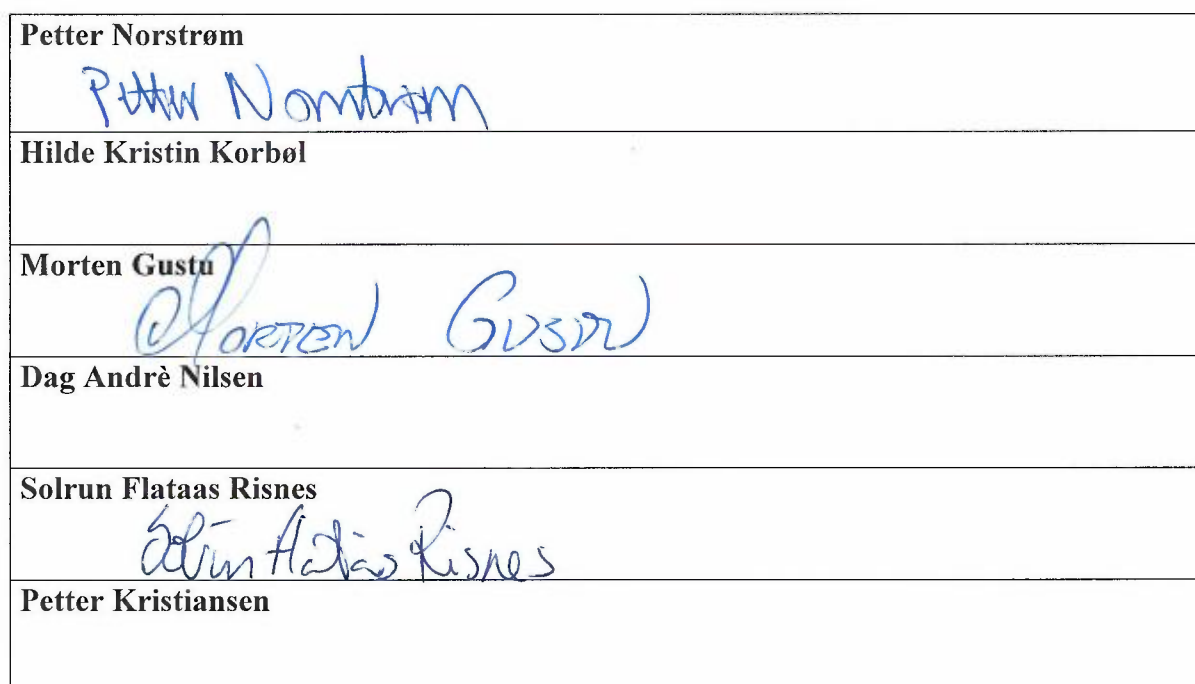 Petter Norstrøm
Petter Norstrøm
Hilde Kristin Korbøl
Morten Gustu
Morten Gustu
Dag Andrè Nilsen
Solrun Flataas Risnes
Solrun Flatås Risnes
Petter Kristiansen